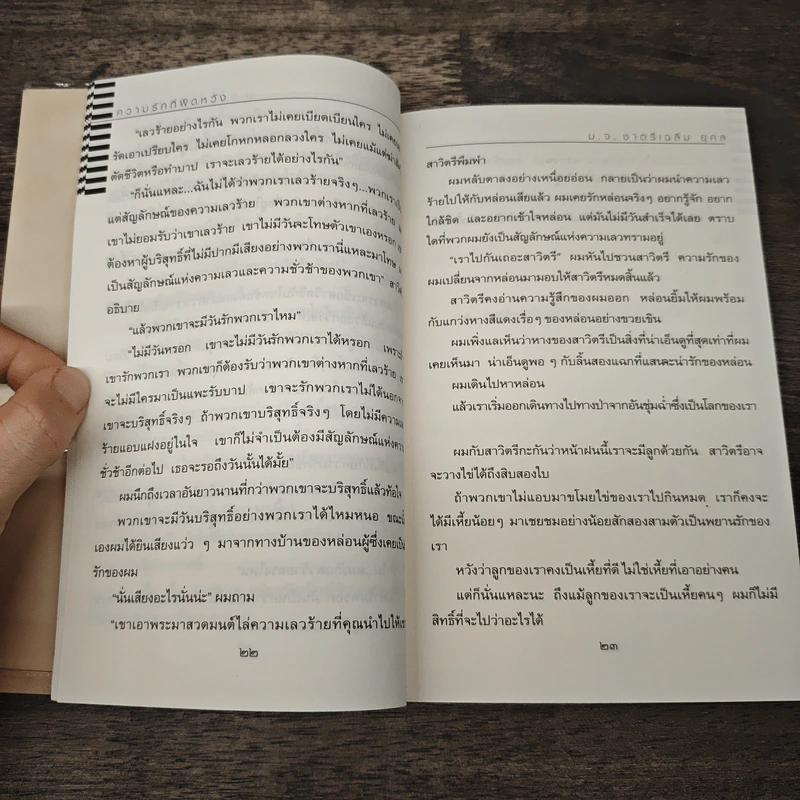 ความรักที่ผิดหวัง
"เลวร้ายอย่างไรกัน พวกเราไม่เคยเบียดเบียนใคร ไม่เคย
รัดเอาเปรียบใคร ไม่เคยโกหกหลอกลวงใคร ไม่เคยแม้แต่
ตัดชีวิตหรือทำบาป เราจะเลวร้ายได้อย่างไรกัน"
"ก็นั่นแหละ...ฉันไม่ได้ว่าพวกเราเลวร้ายจริงๆ...พวกเรา
แต่สัญลักษณ์ของความเลวร้าย พวกเขาต่างหากที่เลวร้าย
เขาไม่ยอมรับว่าเขาเลวร้าย เขาไม่มีวันจะโทษตัวเขาเองหรอก
ต้องหาผู้บริสุทธิ์ที่ไม่มีปากมีเสียงอย่างพวกเรานี่แหละมาโทษ
เป็นสัญลักษณ์แห่งความเลวและความชั่วช้าของพวกเขา"
อธิบาย
"แล้วพวกเขาจะมีวันรักพวกเราไหม"
"ไม่มีวันหรอก เขาจะไม่มีวันรักพวกเราได้หรอก
เขารักพวกเรา พวกเขาก็ต้องรับว่าพวกเขาต่างหากที่เลวร้าย
จะไม่มีใครมาเป็นแพะรับบาป เขาจะรักพวกเราไม่ได้นอกจาก
เขาจะบริสุทธิ์จริงๆ ถ้าพวกเขาบริสุทธิ์จริงๆ โดยไม่มีความ
ร้ายแอบแฝงอยู่ในใจ เขาก็ไม่จำเป็นต้องมีสัญลักษณ์แห่งความ
ชั่วช้าอีกต่อไป เธอจะรอถึงวันนั้นได้มั้ย"
ผมนึกถึงเวลาอันยาวนานที่กว่าพวกเขาจะบริสุทธิ์แล้วท้อใจ
พวกเขาจะมีวันบริสุทธิ์อย่างพวกเราได้ไหมหนอ
เองผมได้ยินเสียงแว่ว ๆ มาจากทางบ้านของหล่อนผู้ซึ่งเคยเป็น
รักของผม
"นั่นเสียงอะไรนั่นน่ะ" ผมถาม
"เขาเอาพระมาสวดมนต์ไล่ความเลวร้ายที่คุณนำไปให้
๒๒
ม.จ.ชาตรีเฉลิม ยุคล
สาวิตรีพึมพำ
ผมหลับตาลงอย่างเหนื่อยอ่อน กลายเป็นว่าผมนำความเลว
ร้ายไปให้กับหล่อนเสียแล้ว ผมเคยรักหล่อนจริงๆ อยากรู้จัก อยาก
ใกล้ชิด และอยากเข้าใจหล่อน แต่มันไม่มีวันสำเร็จได้เลย ตราบ
ใดที่พวกผมยังเป็นสัญลักษณ์แห่งความเลวทรามอยู่
"เราไปกันเถอะสาวิตรี" ผมหันไปชวนสาวิตรี ความรักของ
ผมเปลี่ยนจากหล่อนมามอบให้สาวิตรีหมดสิ้นแล้ว
สาวิตรีคงอ่านความรู้สึกของผมออก หล่อนยิ้มให้ผมพร้อม
กับแกว่งหางสีแดงเรื่อๆ ของหล่อนอย่างขวยเขิน
ผมเพิ่งแลเห็นว่าหางของสาวิตรีเป็นสิ่งที่น่าเอ็นดูที่สุดเท่าที่ผม
เคยเห็นมา น่าเอ็นดูพอ ๆ กับลิ้นสองแฉกที่แสนจะน่ารักของหล่อน
ผมเดินไปหาหล่อน
แล้วเราเริ่มออกเดินทางไปทางป่าจากอันชุ่มฉ่ำซึ่งเป็นโลกของเรา
ผมกับสาวิตรีกะกันว่าหน้าฝนนี้เราจะมีลูกด้วยกัน สาวิตรีอาจ
จะวางไข่ได้ถึงสิบสองใบ
ถ้าพวกเขาไม่แอบมาขโมยไข่ของเราไปกินหมด เราก็คงจะ
ได้มีเหี้ยน้อยๆ มาเชยชมอย่างน้อยสักสองสามตัวเป็นพยานรักของ
เรา
หวังว่าลูกของเราคงเป็นเหี้ยที่ดี ไม่ใช่เหี้ยที่เอาอย่างคน
แต่ก็นั่นแหละนะ ถึงแม้ลูกของเราจะเป็นเหี้ยคนๆ ผมก็ไม่มี
สิทธิ์ที่จะไปว่าอะไรได้
๒๓